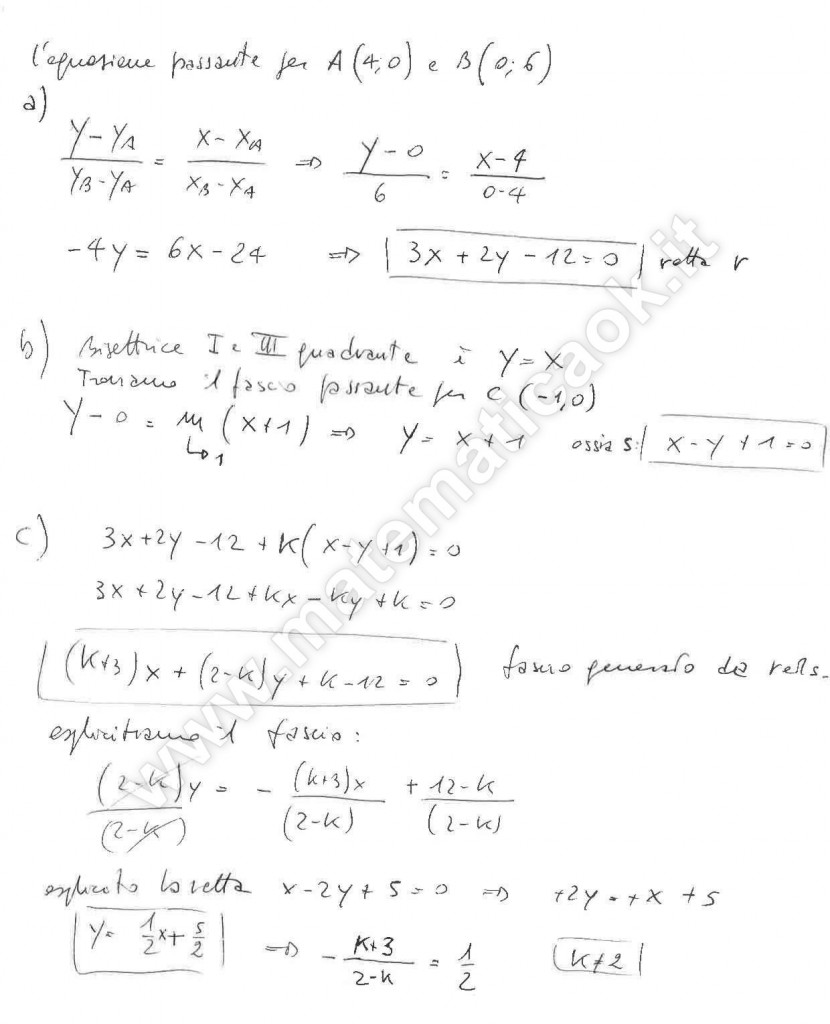 l'equazione passante per A(4;0) e B(0;6)
a)
(y-yA)/(yB-yA) = (x-xA)/(xB-xA) ⇒ (y-0)/6 = (x-4)/(0-4)
-4y = 6x-24 ⇒ 3x+2y-12=0 retta r
b) Bisettrice I e III quadrante è y=x
Troviamo il fascio passante per C (-1,0)
y-0 = m (x+1) ⇒ y = x+1 ossia s: x-y+1=0
↳1
c) 3x+2y-12+k(x-y+1)=0
3x+2y-12+kx-ky+k=0
(k+3)x+(2-k)y+k-12=0 fascio generato da r e s.
esplicitiamo il fascio:
(2-k)y/(2-k) = -(k+3)x/(2-k) + 12-k/(2-k)
esplicito la retta x-2y+5=0 ⇒ +2y=+x+5
y= 1/2x+5/2 ⇒ -(k+3)/(2-k) = 1/2 k≠2
www.matematicaok.it